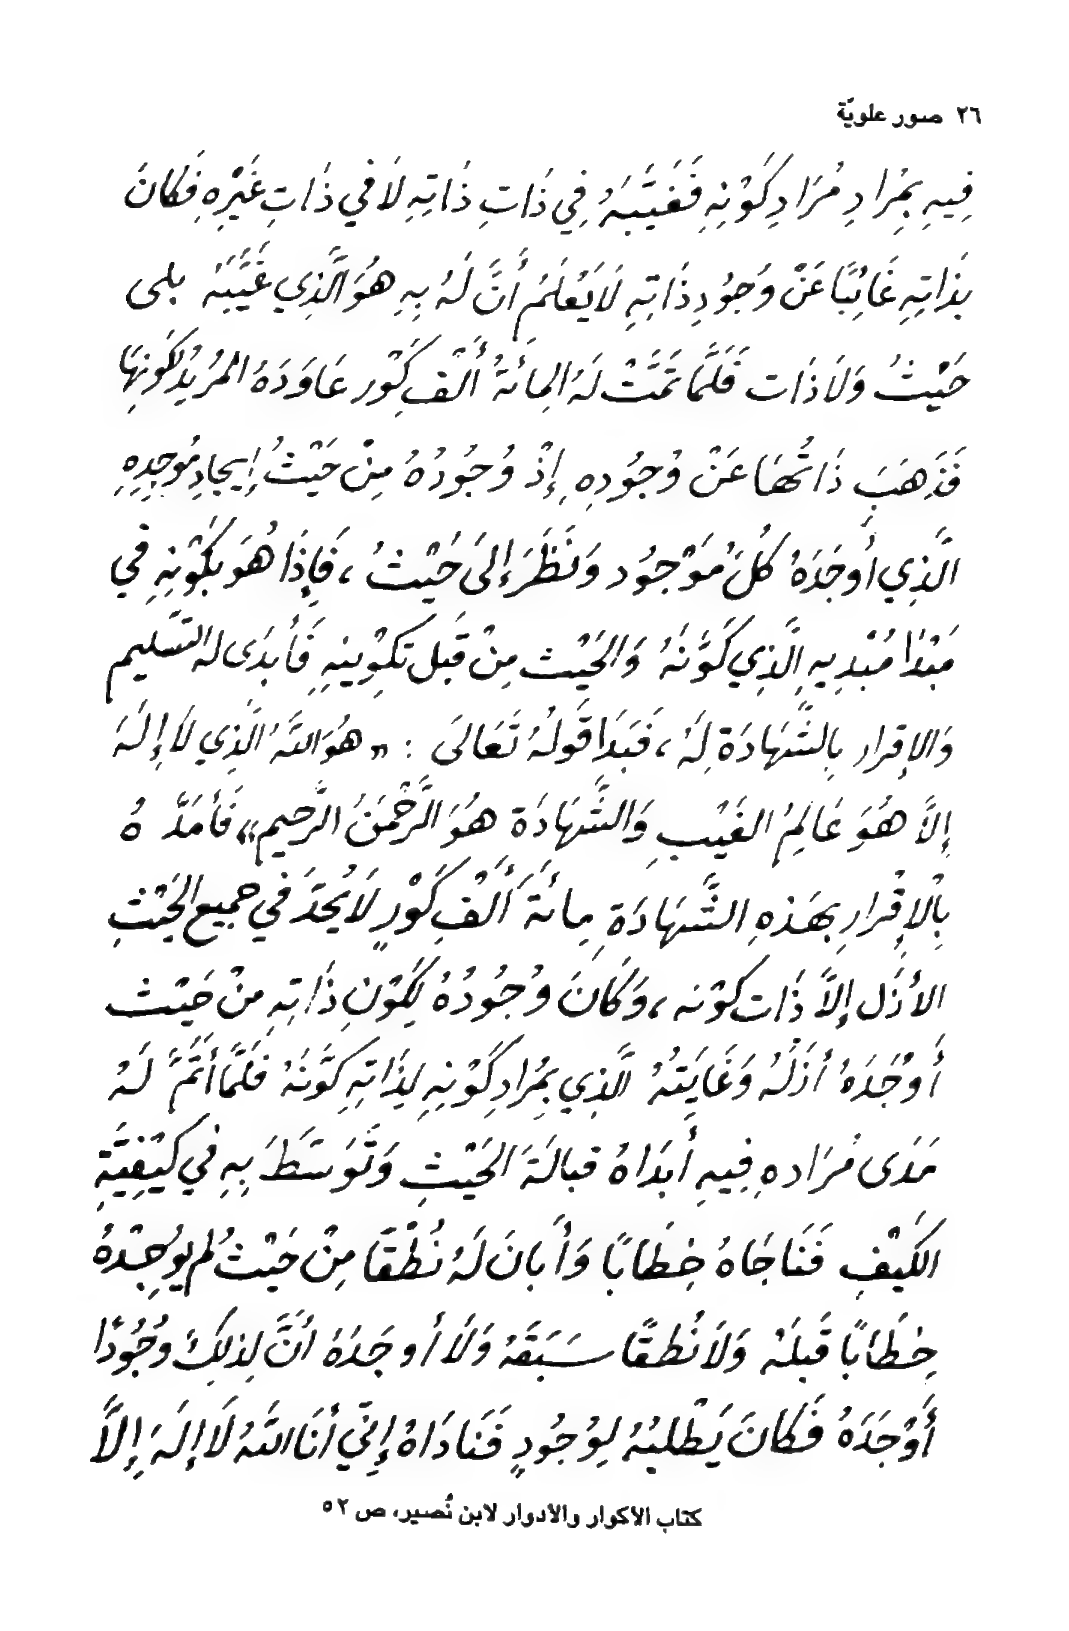 ٢٦ صور علويّة
فِيهِ بِمُرَادِ مُرَادِ كَوْنِهِ فَغَيَّبَهُ فِي ذَاتِ ذَاتِهِ لَا فِي ذَاتِ غَيْرِهِ فَكَانَ
بِذَاتِهِ غَائِبًا عَنْ وُجُودِ ذَاتِهِ لَا يَعْلَمُ أَنَّ لَهُ بِهِ هُوَ الَّذِي غَيَّبَهُ بلى
حَيْثُ وَلَا ذَات فَلَمَّا تَمَّتْ لَهُ المِائَةُ أَلْف كَوْر عَاوَدَهُ المُرِيدُ لكَونِهَا
فَذَهَبَ ذَاتُهَا عَنْ وُجُودِهِ إِذْ وُجُودُهُ مِنْ حَيْثُ إِيجادِ مُوجِدِهِ
الَّذِي أَوجَدَهُ كُلَّ مَوْجُود وَنَظَرَ إِلَى حَيْثُ ، فَإِذَا هُوَ بِكَوْنِهِ فِي
مَبْدَا مُبْدِيهِ الَّذِي كَوَّنَهُ وَالحَيْث مِنْ قَبل تَكوِينِهِ فَأَبدَى لَه التَّسليم
وَالإِقرار بِالشَّهَادَة لَهُ ، فَبَدَا قَولُهُ تَعَالَى : « هُوَ اللهُ الَّذِي لَا إِلَهَ
إِلَّا هُوَ عَالِمُ الغَيْبِ وَالشَّهَادَة هُوَ الرَّحْمَنُ الرَّحِيم» فَأَمَدَّهُ
بِالْإِقْرارِ بِهَذِهِ الشَّهَادَة مِائَةَ أَلْفِ كَوْرٍ لَا يُحَدّ فِي جميع الحَيْثِ
الأَزَل إِلَّا ذَات كَوْنه ، وَكَانَ وُجُودُهُ لِكَوْنِ ذَاتِهِ مِنْ حَيْث
أَوْجَدَهُ أَزَلُهُ وَغَايَتُهُ الَّذِي بِمُرادِ كَوْنِهِ لِذَاتِهِ كَوَّنَهُ فَلَمَّا أَتَمَّ لَهُ
مَدَى مُرَاده فِيهِ أَبدَاهُ قبالَةَ الحَيْثِ وَتَوَسَّطَ بِهِ فِي كَيْفِيَّةِ
الكَيْفِ فَنَاجَاهُ خِطَابًا وَأَبانَ لَهُ نُطْقًا مِنْ حَيْثُ لم يُوجِدْهُ
خِطَابًا قَبلَهُ وَلَا نُطقًا سَبَقَهُ وَلَا أَوجَدَهُ أَنَّ لِذلِكَ وُجُودًا
أَوْجَدَهُ فَكَانَ يَطْلبُهُ لِوُجُودٍ فَنَادَاهُ إِنِّي أَنَا اللهُ لَا إِلَهَ إِلَّا
كتاب الأكوار والأدوار لابن نُصير، ص ٥٢